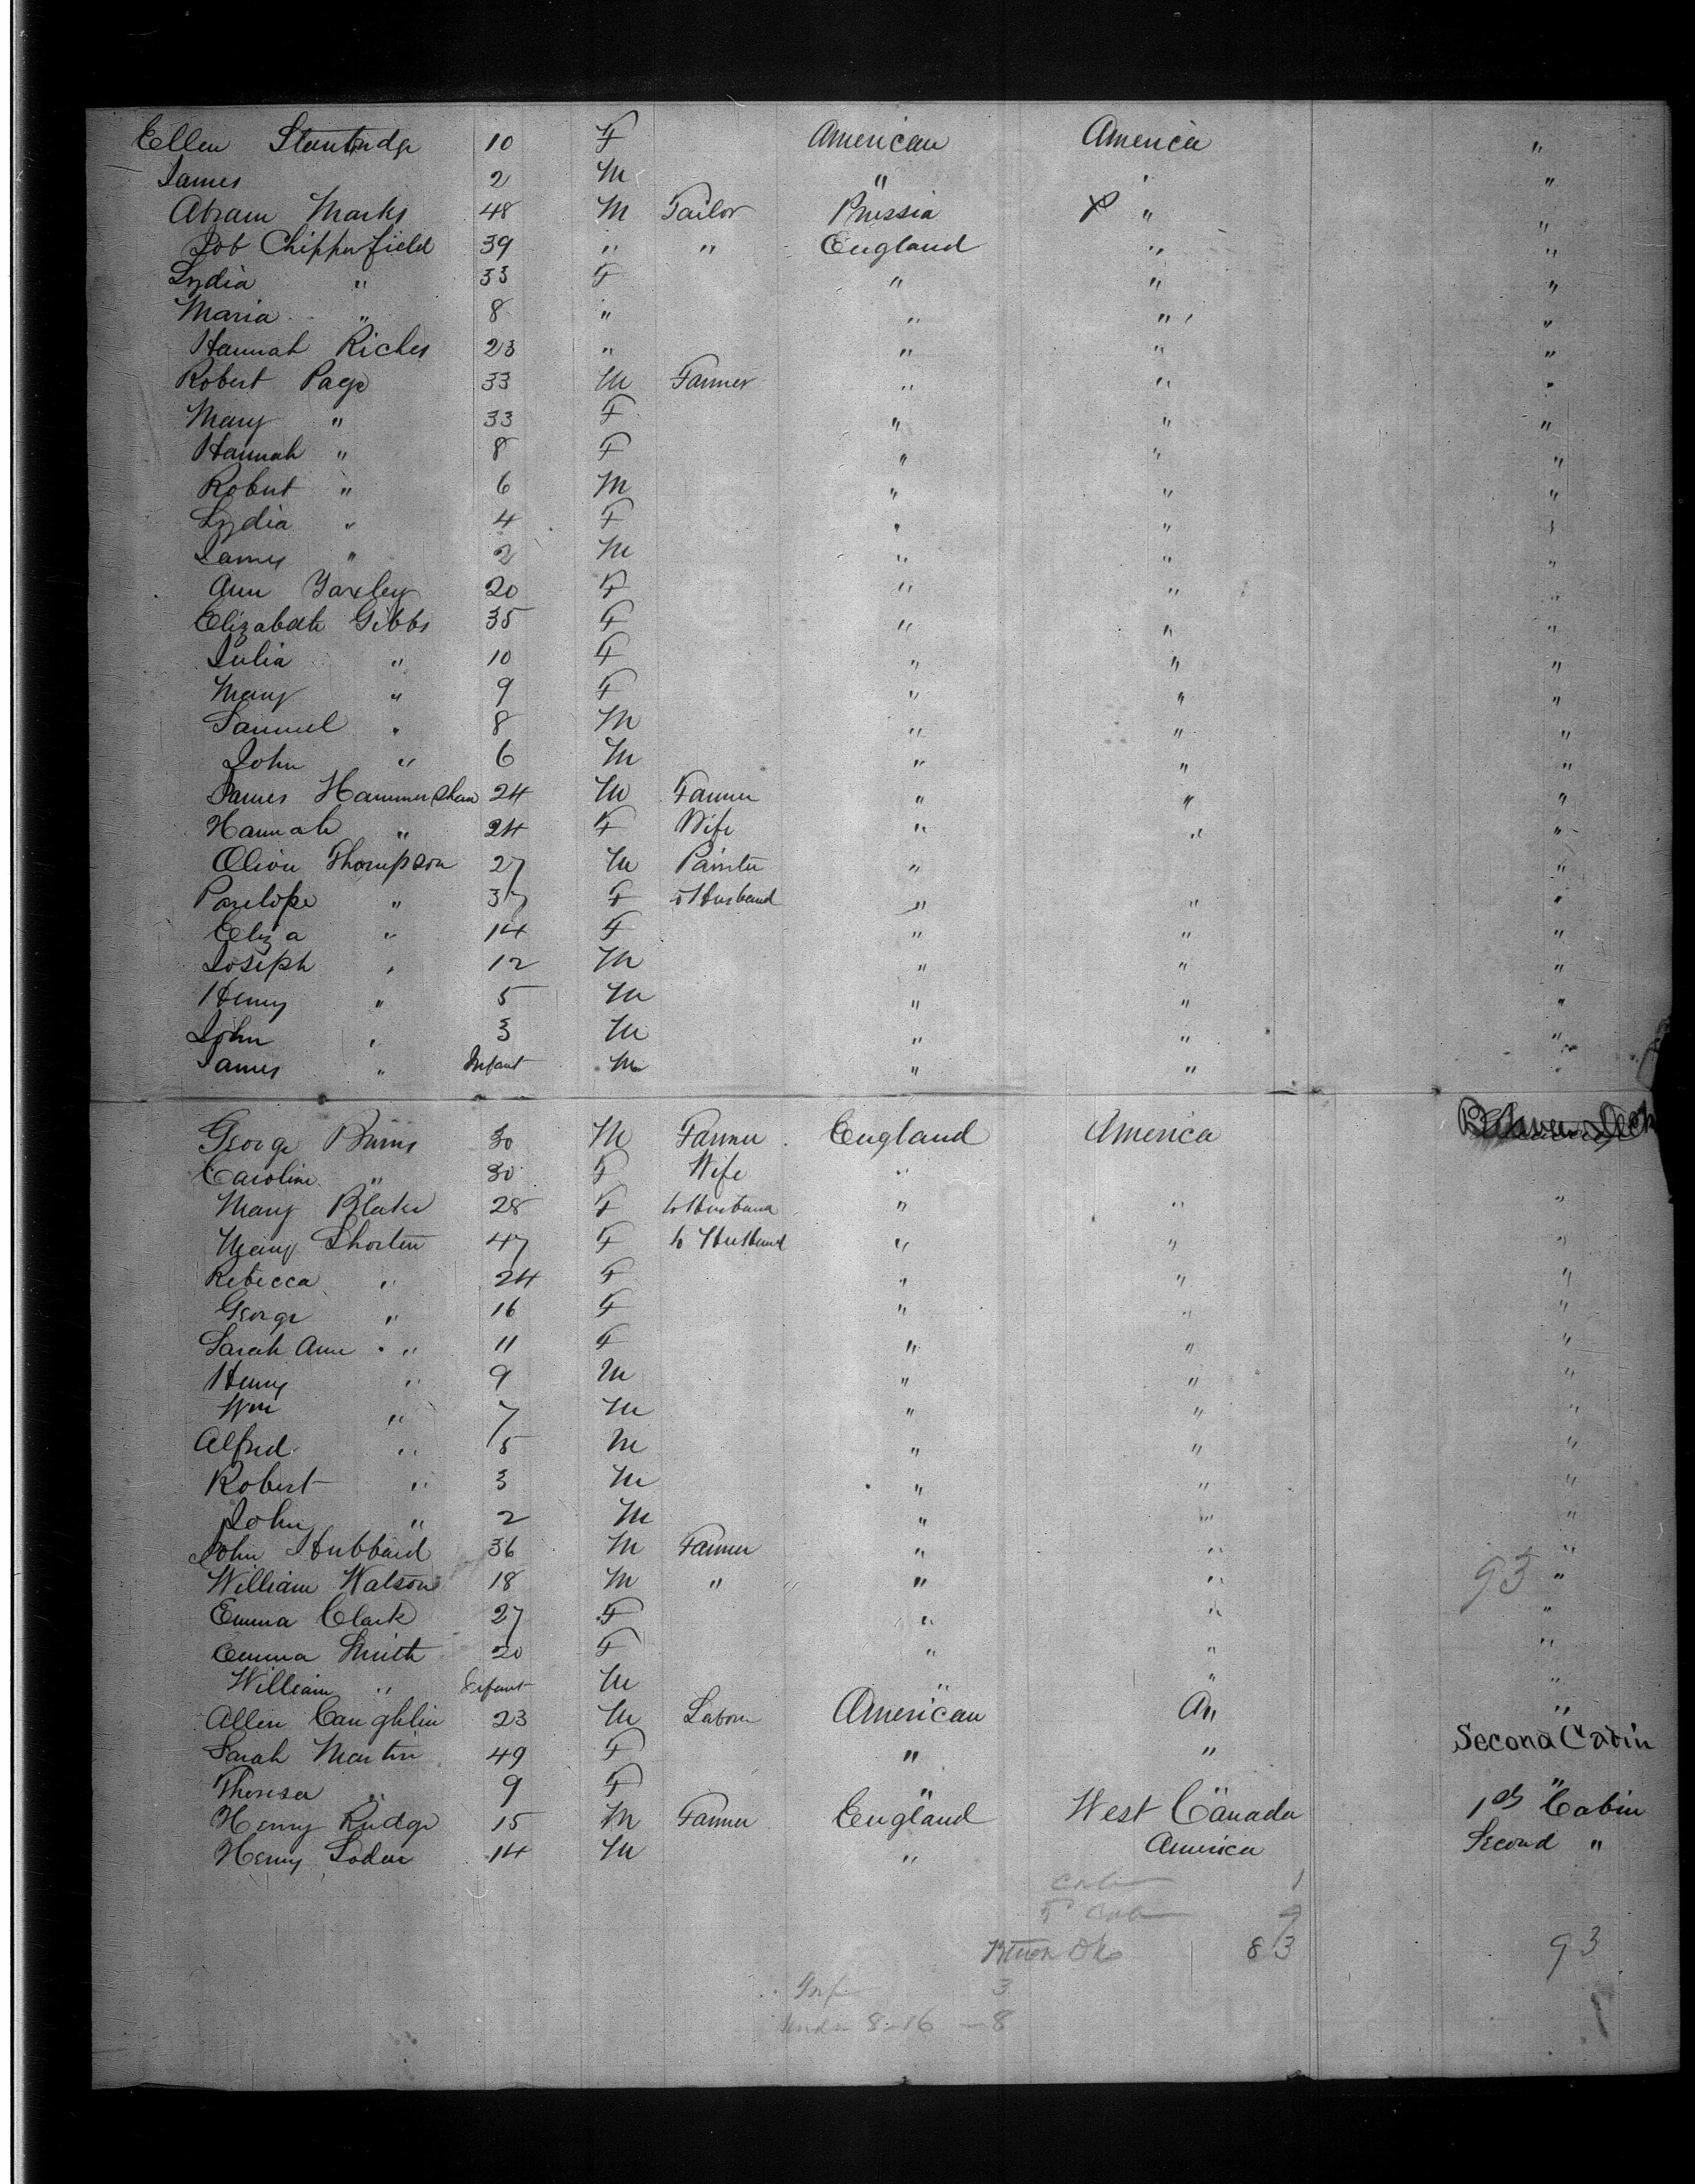 Ellen Stanbridge 10 F American America "
James 2 M " " "
Abram Marks 48 M Tailor Prussia " "
Job Chipperfield 39 " " England " "
Lydia " 33 F " " "
Maria " 8 " " " "
Hannah Riches 23 " " " "
Robert Page 33 M Farmer " " "
Mary " 33 F " " "
Hannah " 8 F " " "
Robert " 6 M " " "
Lydia " 4 F " " "
James " 2 M " " "
Ann Yaxley 20 F " " "
Elizabeth Gibbs 35 F " " "
Julia " 10 F " " "
Mary " 9 F " " "
Samuel " 8 M " " "
John " 6 M " " "
James Hammershan 24 M Farmer " " "
Hannah " 24 F Wife " " "
Thompson 27 M Painter " "
Penelope " 37 F to Husband " " "
Eliza " 14 F " " "
Joseph " 12 M " " "
Henry " 5 M " " "
John " 3 M " " "
James " Infant M " " "
George Burns 30 M Farmer England America
Caroline " 30 F Wife "
Mary Blake 28 F to Husband " " "
Mary Shorten 47 F to Husband " " "
Rebecca " 24 F " " "
George " 16 F " " "
Sarah Ann " 11 F " " "
Henry " 9 M " " "
Wm " 7 M " " "
Alfred " 5 M " " "
Robert " 3 M " " "
John " 2 M " " "
John Hubbard 36 M Farmer " " "
William Watson 18 M " " " 93 "
Emma Clark 27 F " " "
Emma Smith 20 F " " "
William " Infant M " " "
Allen Caughlin 23 M Labour American A" "
Sarah Martin 49 F " " Second Cabin
Theresa " 9 F " " "
Henry Rudge 15 M Farmer England West Canada 1st Cabin
Henry Soden 14 M " America Second "
1
9
83 93
Inf 3
Under 8-16 - 8